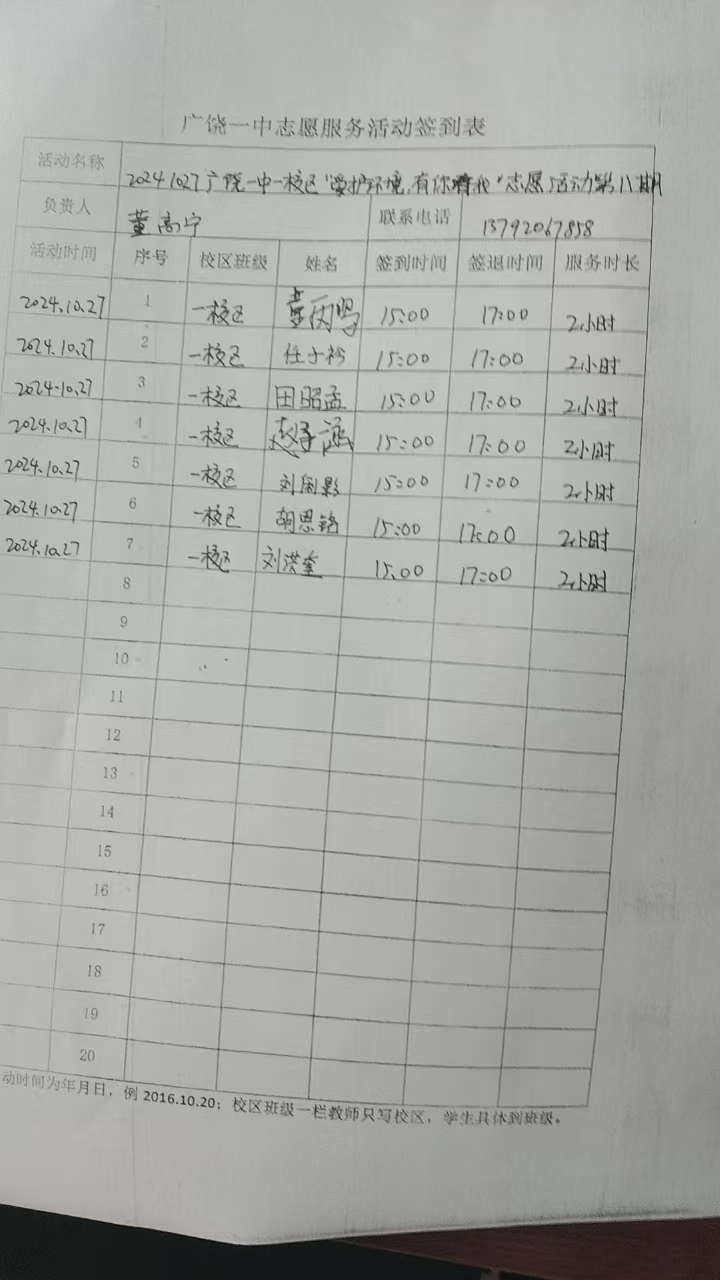 广饶一中志愿服务活动签到表
活动名称 20241027广饶一中一校区"爱护环境,有你有我"志愿活动第八期
负责人 董高宁 联系电话 13792067858
活动时间 序号 校区班级 姓名 签到时间 签退时间 服务时长
2024.10.27 1 一校区 15:00 17:00 2小时
2024.10.27 2 一校区 任子衿 15:00 17:00 2小时
2024.10.27 3 一校区 田昭孟 15:00 17:00 2小时
2024.10.27 4 一校区 赵子涵 15:00 17:00 2小时
2024.10.27 5 一校区 15:00 17:00 2小时
2024.10.27 6 一校区 胡恩铭 15:00 17:00 2小时
2024.10.27 7 一校区 刘洪奎 15:00 17:00 2小时
8
9
10
11
12
13
14
15
16
17
18
19
20
动时间为年月日，例 2016.10.20；校区班级一栏教师只写校区，学生具体到班级。